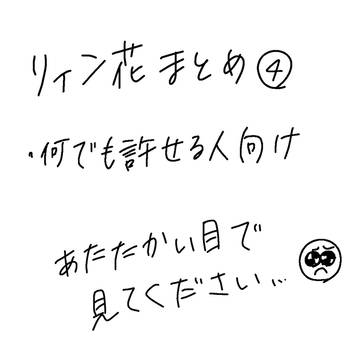 リイン花まとめ④
・何でも許せる人向け
あたたかい目で
見てください…